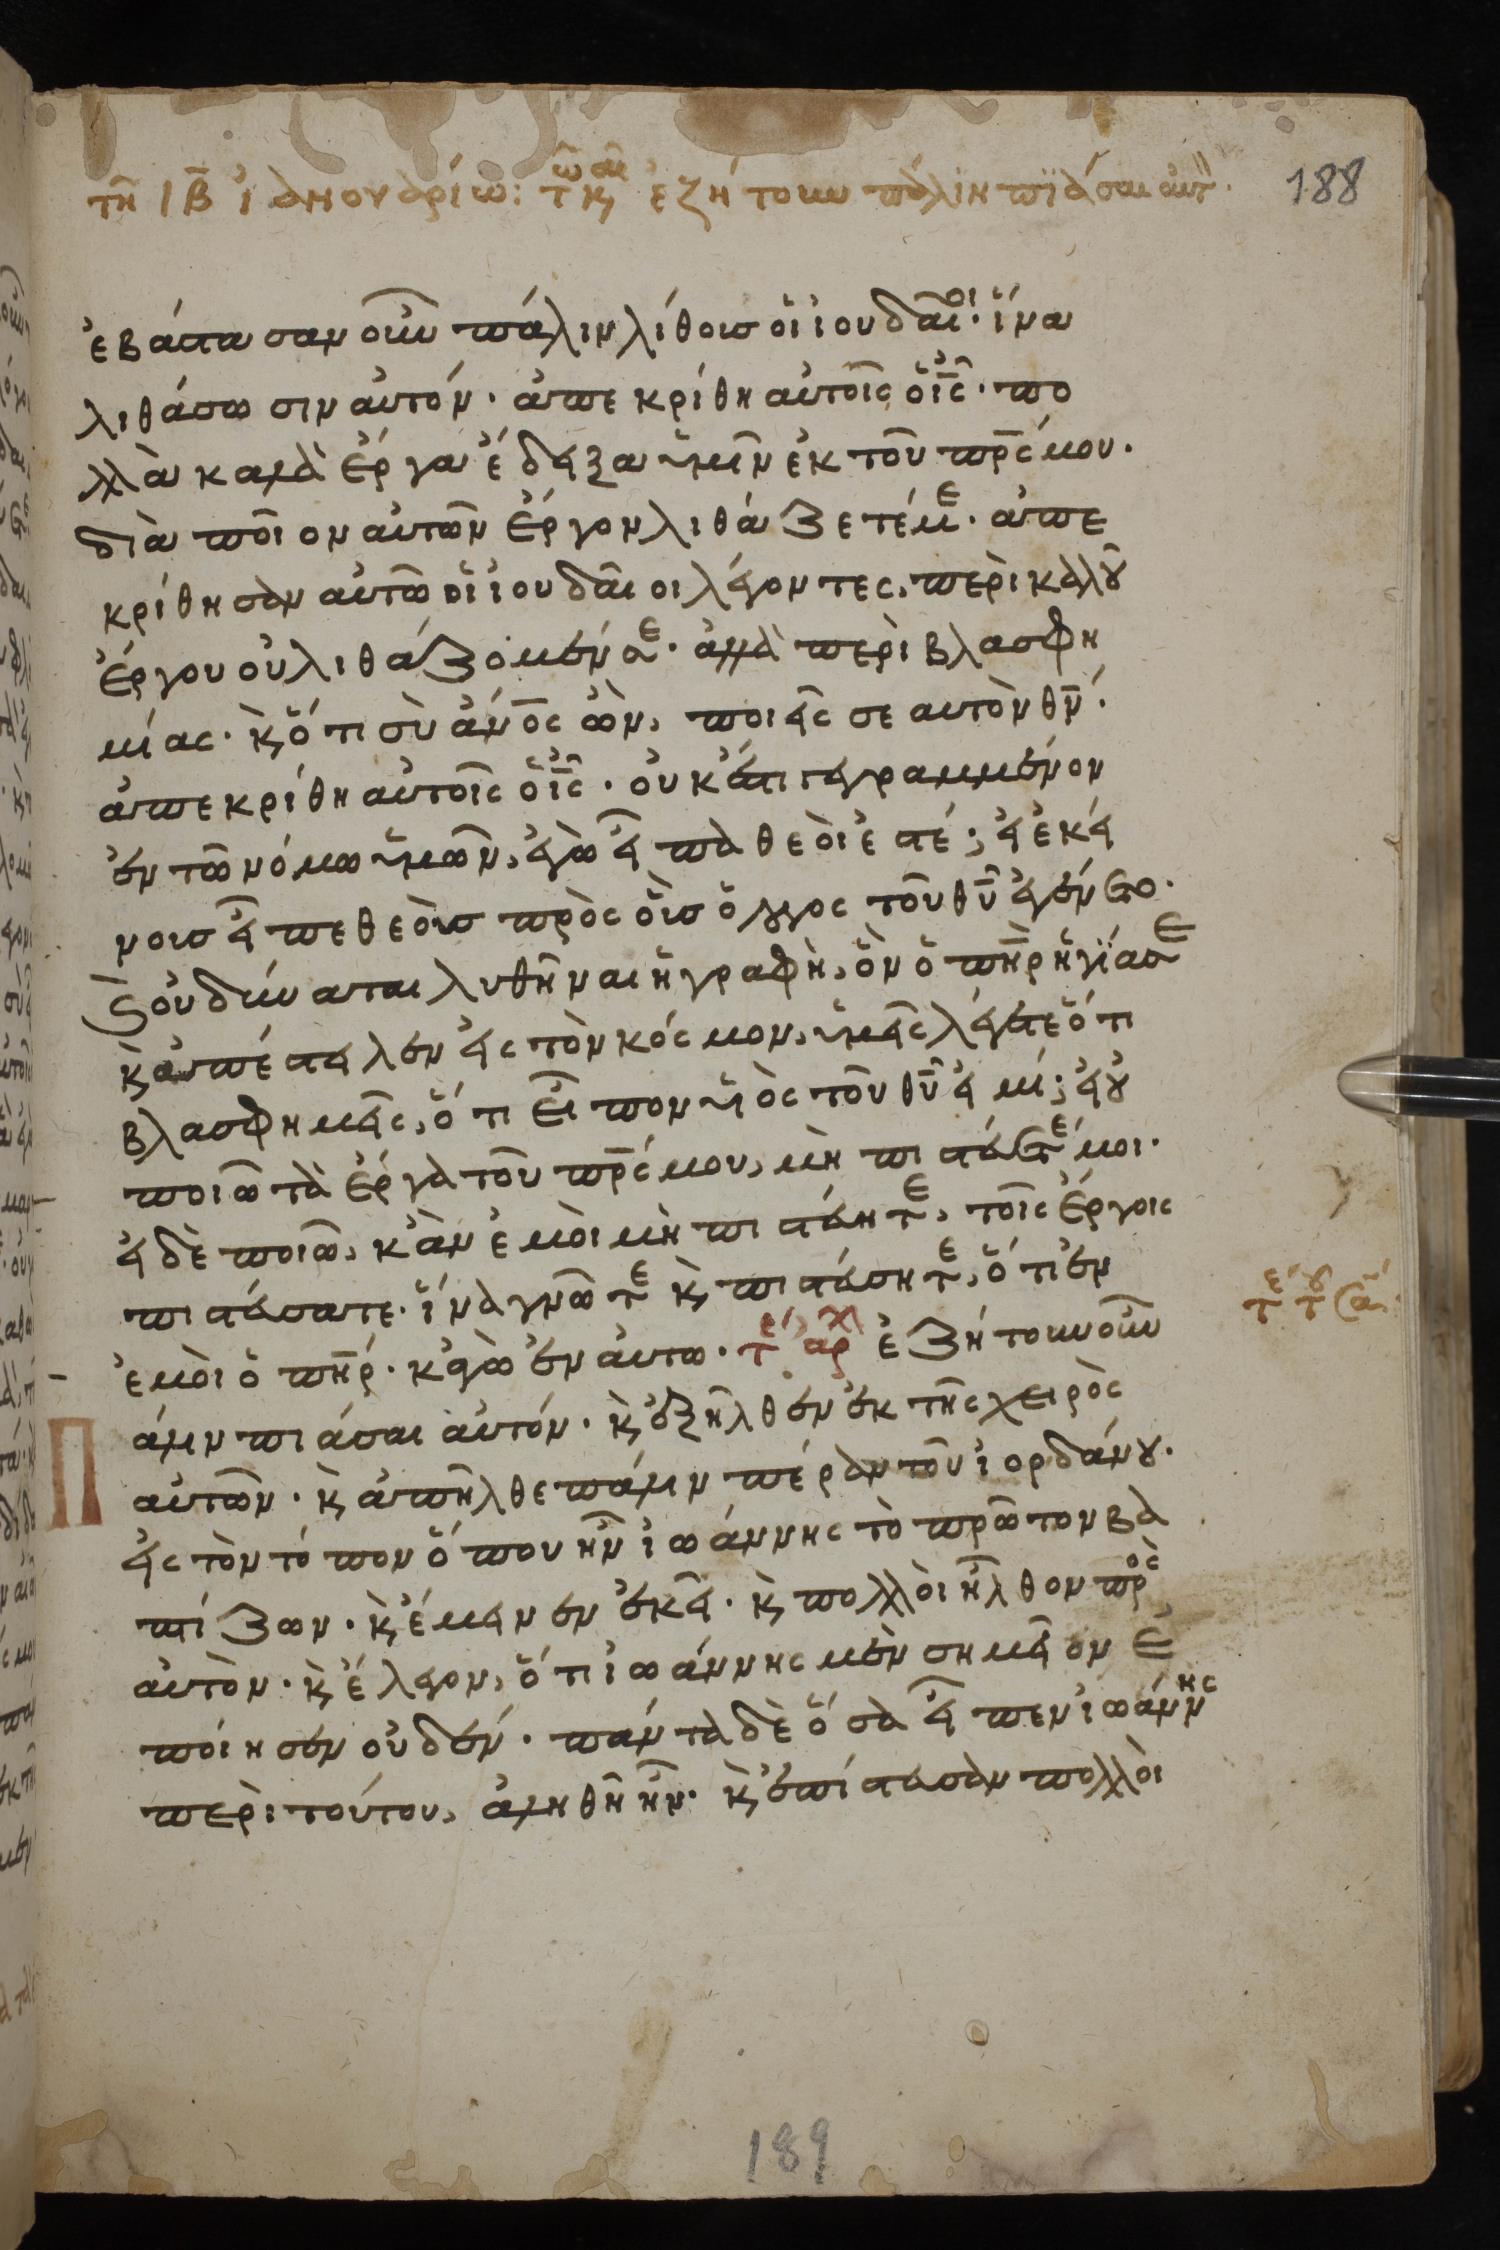 τῆ ιβ ἰανουαρίω: τῶ κ αι ἐζήτουν πάλιν πϊάσαι αὐτ
188
ἐβάστασαν οὖν πάλιν λίθους οἱ ἰουδαῖοι· ἵνα
λιθάσωσιν αὐτόν· ἀπεκρίθη αὐτοῖς ὁ ἰς· πο
λλὰ καλὰ ἔργα ἔδειξα ὑμῖν ἐκ τοῦ πρς μου·
διὰ ποῖον αὐτῶν ἔργον λιθάζετέ με· ἀπε
κρίθησαν αὐτῶ οἱ ἰουδαῖοι λέγοντες, περὶ καλοῦ
ἔργου οὐ λιθάζομέν σε· ἀλλὰ περὶ βλασφη
μίας· κ ὅτι σὺ ἄνος ὢν, ποιεῖς σεαυτὸν θν·
ἀπεκρίθη αὐτοῖς ὁ ἰς· οὐκ ἔστι γεγραμμένον
ἐν τῶ νόμω ὑμῶν, ἐγὼ εἶπα θεοί ἐστέ; εἰ ἐκεί
νους εἶπε θεοὺς πρὸς οὓς ὁ λόγος τοῦ θυ ἐγένετο·
κ οὐ δύναται λυθῆναι ἡ γραφὴ, ὃν ὁ πηρ ἡγίασε
κ ἀπέστειλεν εἰς τὸν κόσμον, ὑμεῖς λέγετε ὅτι
βλασφημεῖς, ὅτι εἶπον υἱὸς τοῦ θυ εἰμί; εἰ οὐ
ποιῶ τὰ ἔργα τοῦ πρς μου, μὴ πιστεύετέ μοι·
εἰ δὲ ποιῶ, κἂν ἐμοὶ μὴ πιστεύητε, τοῖς ἔργοις
πιστεύσατε· ἵνα γνῶτε κ πιστεύσητε, ὅτι ἐν
τε του σα
ἐμοὶ ὁ πηρ· κἀγὼ ἐν αὐτω· τε αρχ ἐζήτουν οὖν
Π
άλιν πιάσαι αὐτόν· κ ἐξῆλθεν ἐκ τῆς χειρὸς
αὐτῶν· κ ἀπῆλθε πάλιν πέραν τοῦ ἰορδάνου·
εἰς τὸν τόπον ὅπου ἦν ἰωάννης τὸ πρῶτον βα
πτίζων· κ ἔμεινεν ἐκεῖ· κ πολλοὶ ἦλθον πρὸς
αὐτὸν· κ ἔλεγον, ὅτι ἰωάννης μὲν σημεῖον ἐ
ποίησεν οὐδέν· πάντα δὲ ὅσα εἶπεν ἰωάννης
περὶ τούτου, ἀληθῆ ἦν· κ ἐπίστευσαν πολλοὶ
189